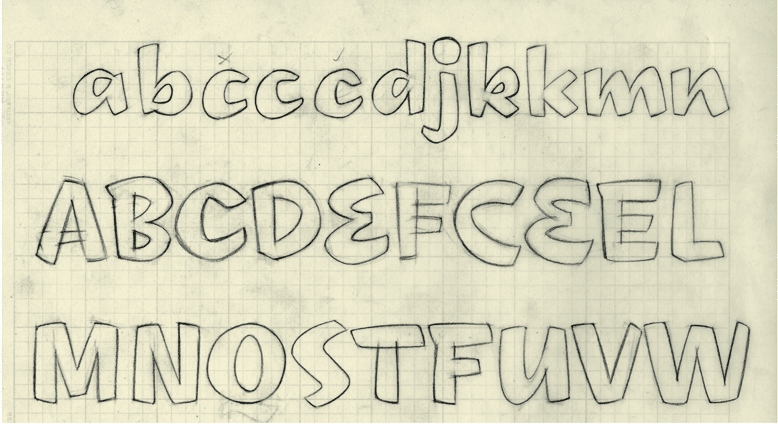 abčcćdjkkmn
ABCDEFCEEL
MNOSTFUVW